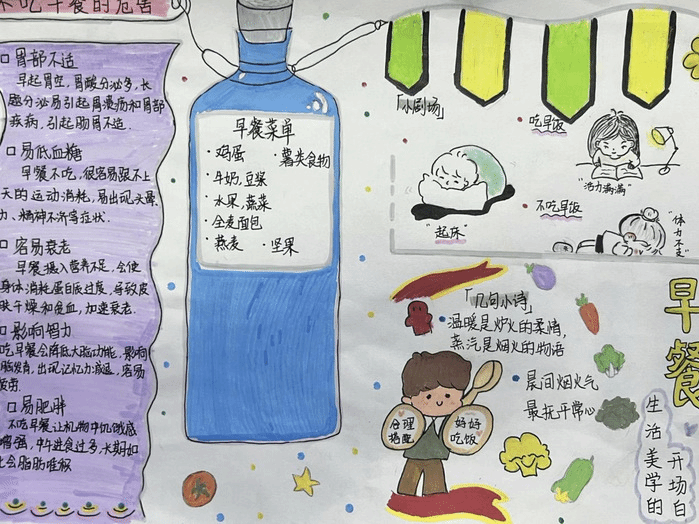 不吃早餐的危害
胃部不适
早起胃空，胃酸分泌多，长
酸分泌易引起胃溃疡和胃部
疾病，引起肠胃不适.
易低血糖
早餐不吃，很容易跟不上
天的运动消耗，易出现头晕
力、精神不济等症状.
容易衰老
早餐摄入营养不足，会使
身体消耗蛋白质过度，导致皮
肤干燥和贫血，加速衰老.
影响智力
吃早餐会降低大脑功能，影响
脑发育，出现记忆力减退，容易
易肥胖
不吃早餐让机物中饥饿感
增强，中午进食过多，长期如
会脂肪堆积
早餐菜单
·鸡蛋 ·薯类食物
·牛奶,豆浆
·水果,蔬菜
·全麦面包
·燕麦 ·坚果
「小剧场」
吃早饭
"活力满满"
"起床"
不吃早饭
"体力不支"
「几句小诗」
温暖是炉火的柔情,
蒸汽是烟火的物语
晨间烟火气
最抚平常心
合理
搭配
好好
吃饭
早餐
生活美学的
开场白